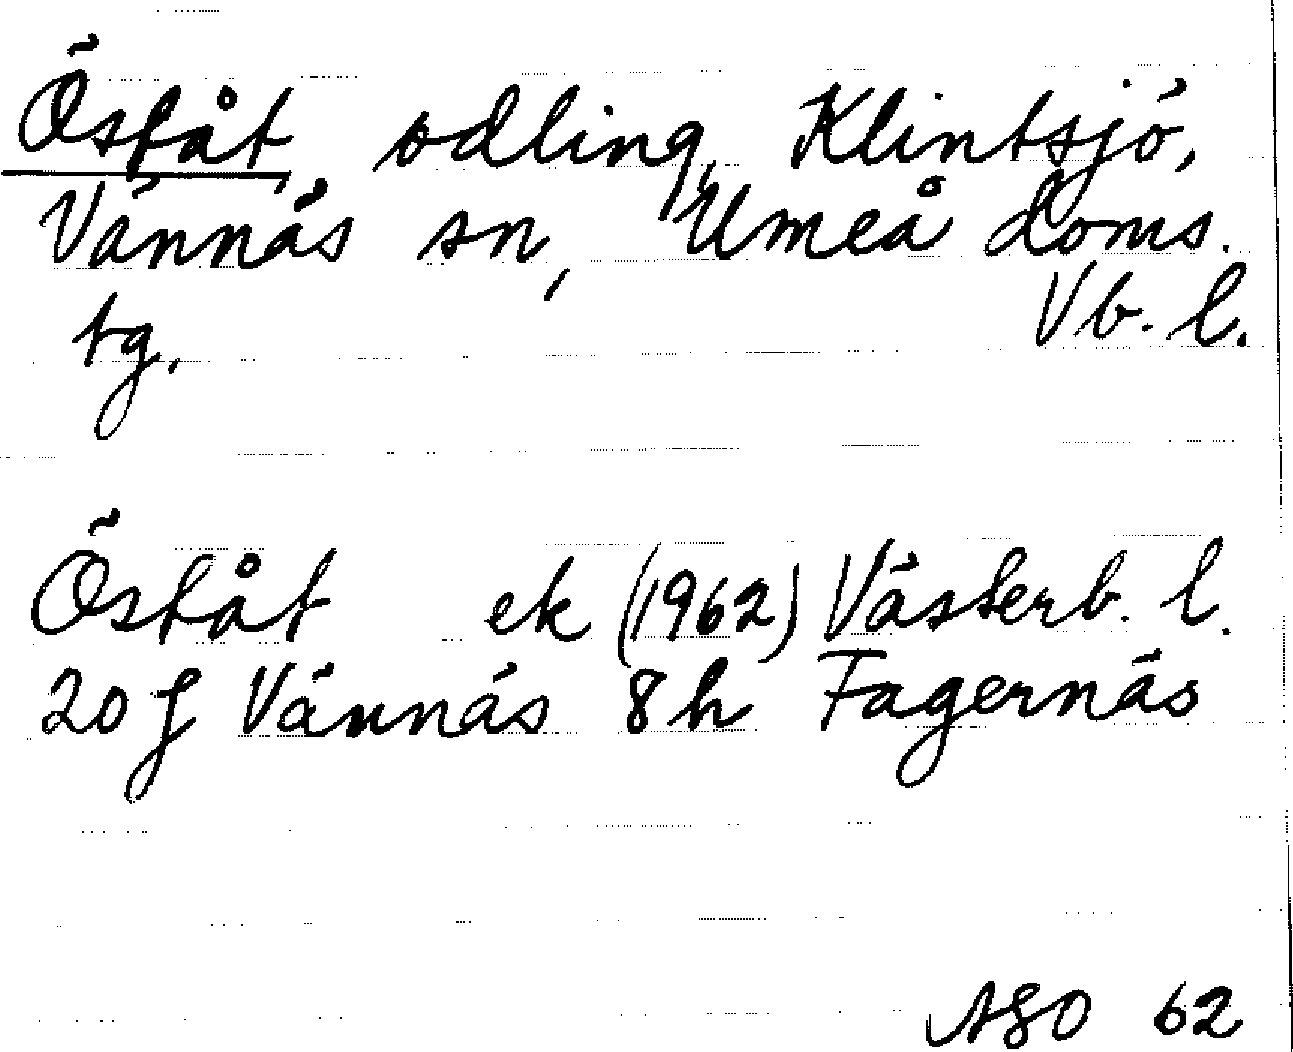 Öståt, odling, Klintsjö,
Vännäs sn, Umeå doms.
tg. Vb. l.
Öståt ek (1962) Västerb. l.
20 J Vännäs 8h Fagernäs
62